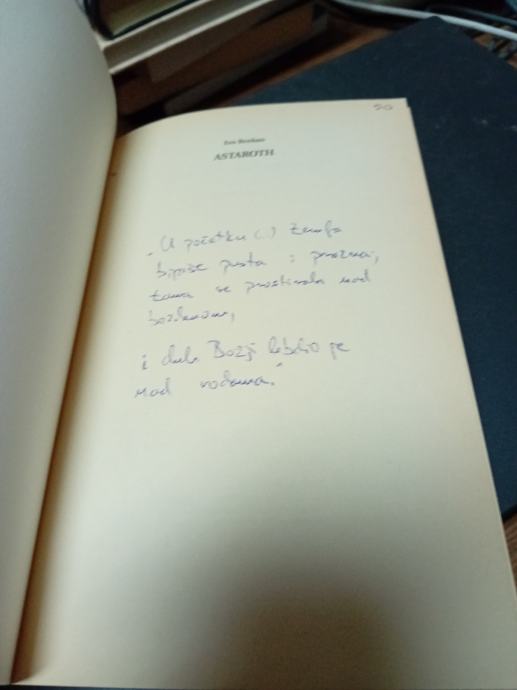 Ivo Brešan
ASTAROTH
„U početku (..) Zemlja
bijaše pusta i prazna;
tama se prostirala nad
bezdanom,
i duh Božji lebdio je
nad vodama.”